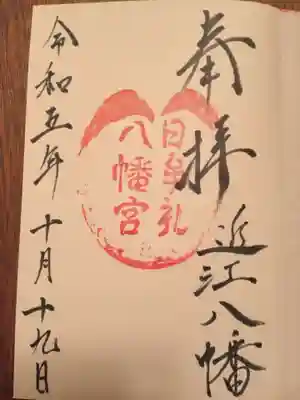 奉拝 近江八幡
日牟礼
八幡宮
令和五年 十月 十九日